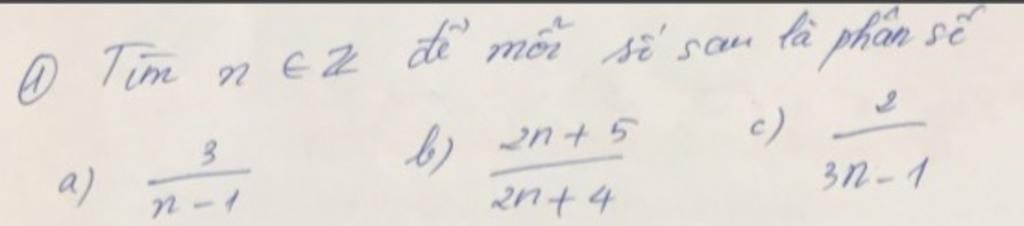 ① Tìm n ∈ Z để mỗi số sau là phân số
a) 3/(n - 1) b) (2n + 5)/(2n + 4) c) 2/(3n - 1)